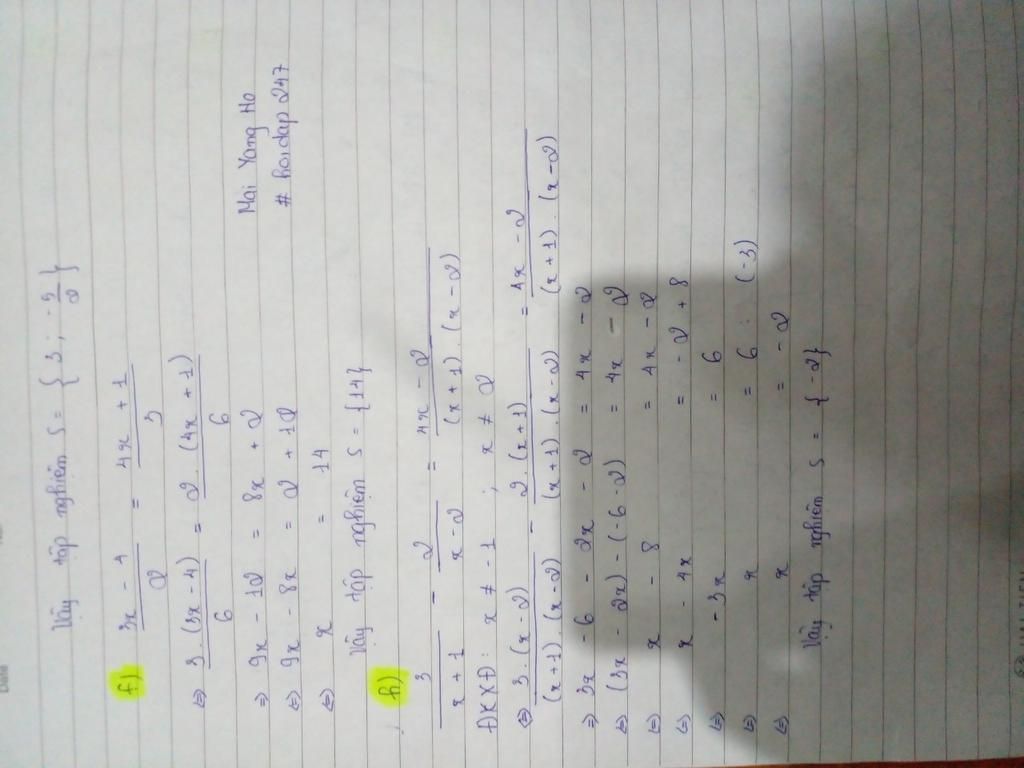 Vậy tập nghiệm S = { 3 ; -5/2 }
f) (3x - 4)/2 = (4x + 1)/3
⇔ 3.(3x - 4)/6 = 2.(4x + 1)/6
⇒ 9x - 12 = 8x + 2
⇔ 9x - 8x = 2 + 12
⇔ x = 14
Mai Yang Ho
# hoidap247
Vậy tập nghiệm S = {14}
h) 3/(x + 1) - 2/(x - 2) = (4x - 2)/((x + 1).(x - 2))
ĐKXĐ: x ≠ -1 ; x ≠ 2
⇔ 3.(x - 2)/((x + 1).(x - 2)) - 2.(x + 1)/((x + 1).(x - 2)) = (4x - 2)/((x + 1).(x - 2))
⇒ 3x - 6 - 2x - 2 = 4x - 2
⇔ (3x - 2x) - (-6 - 2) = 4x - 2
⇔ x - 8 = 4x - 2
⇔ x - 4x = -2 + 8
⇔ -3x = 6
⇔ x = 6 : (-3)
⇔ x = -2
Vậy tập nghiệm S = {-2}